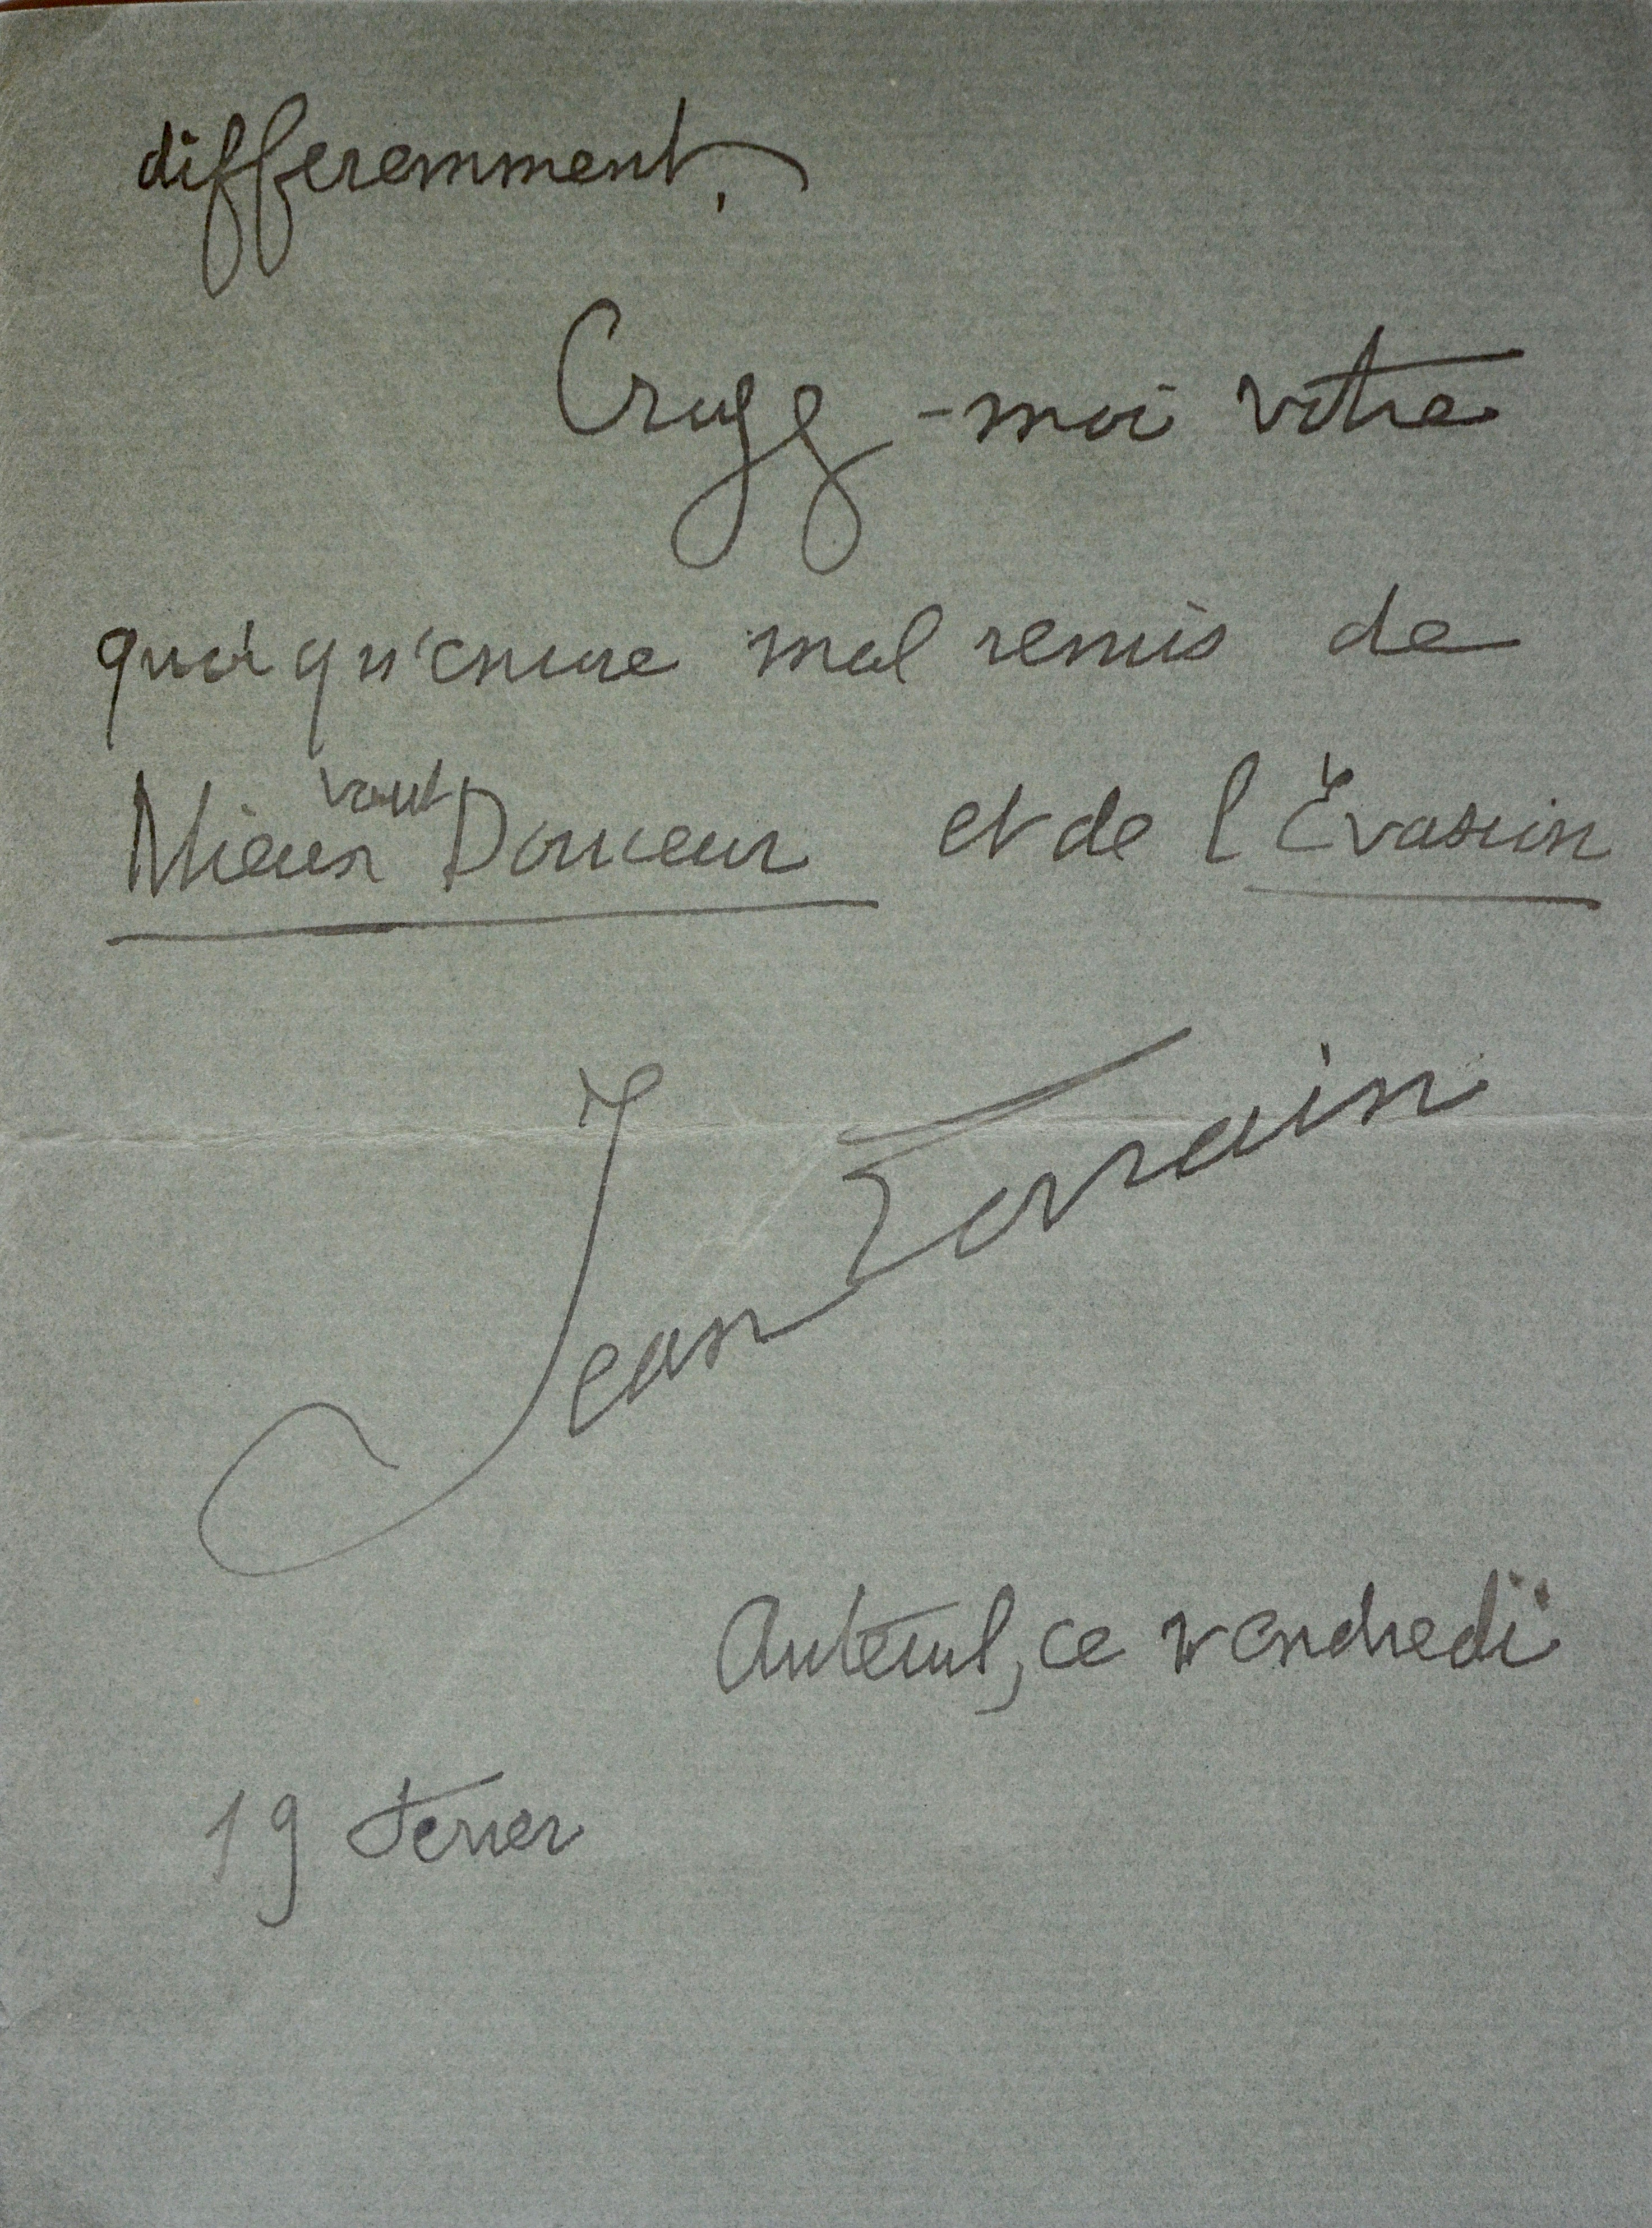 differemment.
Croyez-moi votre
quoiqu'encore mal remis de
Mieux vaut Douceur et de l'Évasion
Jean Lorrain
Auteuil, ce vendredi
19 Fevrier